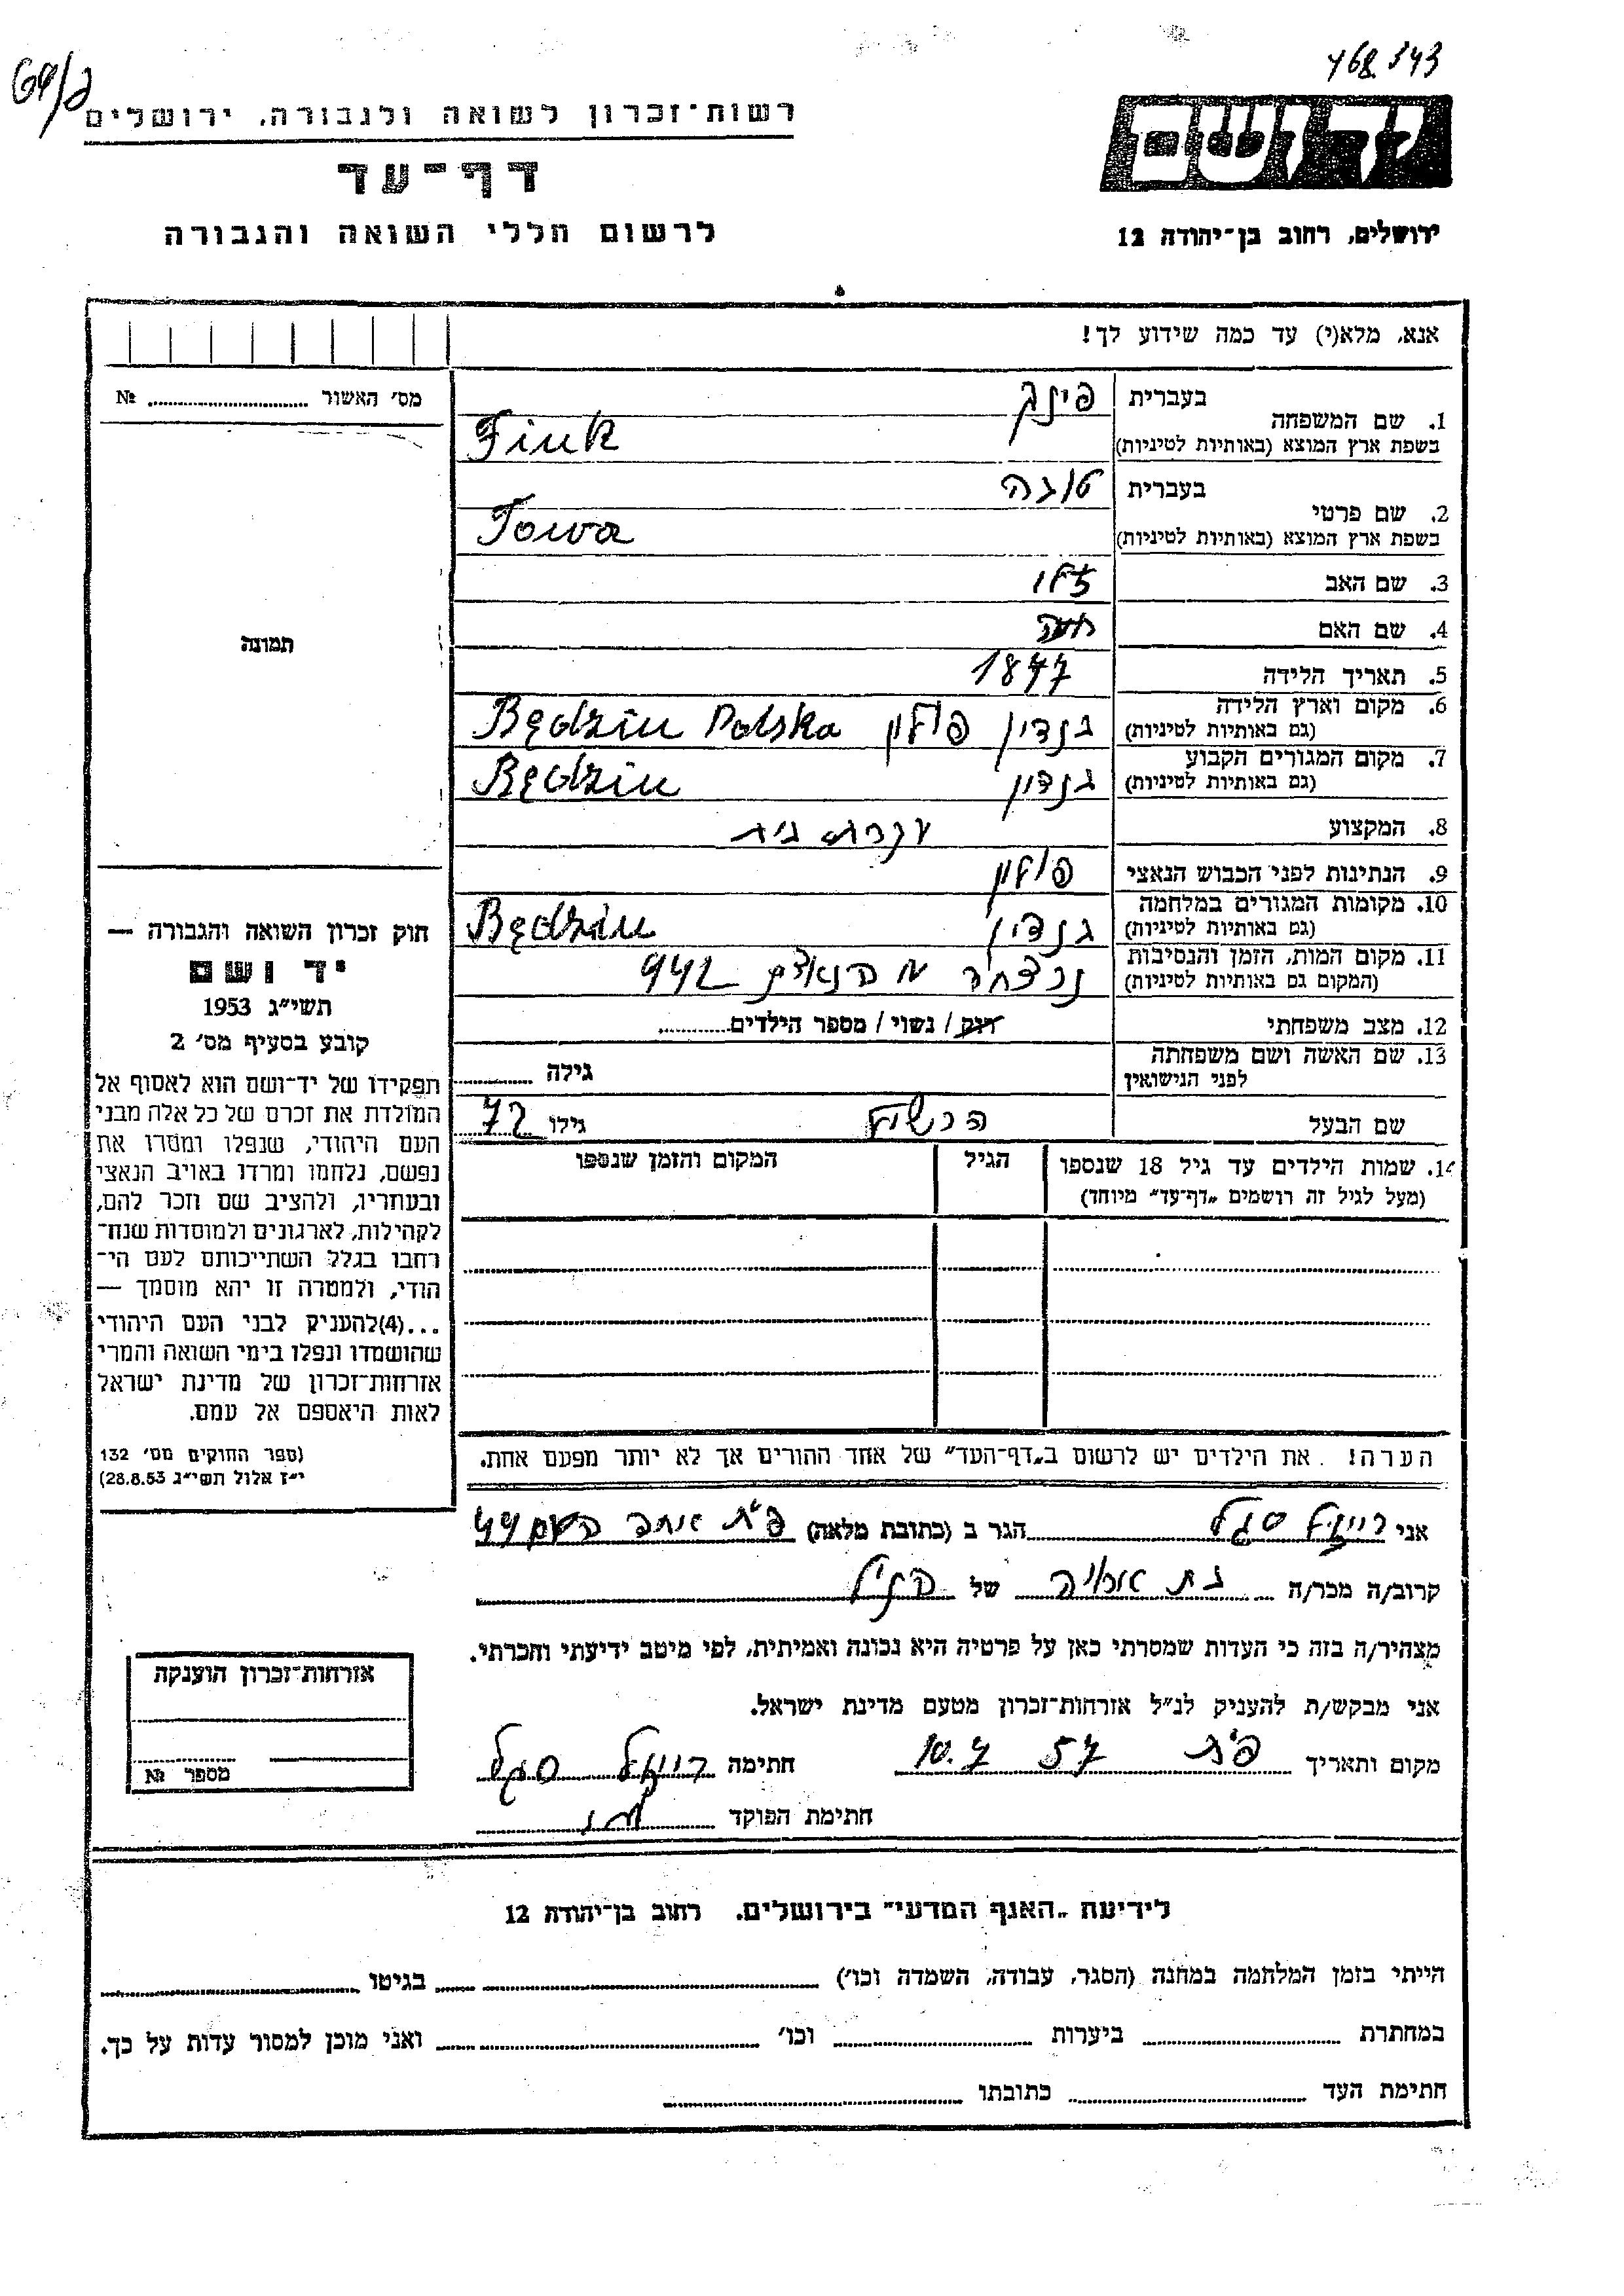 64/ב
468343
רשות-זכרון לשואה ולגבורה, ירושלים
יד ושם
דף-עד
לרשום חללי השואה והגבורה
ירושלים, רחוב בן-יהודה 12
אנא, מלא(י) עד כמה שידוע לך!
מס׳ האשור № 
1. שם המשפחה בעברית פינק
בשפת ארץ המוצא (באותיות לטיניות) Fink
2. שם פרטי בעברית טובה
בשפת ארץ המוצא (באותיות לטיניות) Towa
3. שם האב
4. שם האם
5. תאריך הלידה 1877
6. מקום וארץ הלידה (גם באותיות לטיניות) בנדין פולין Będzin Polska
7. מקום המגורים הקבוע (גם באותיות לטיניות) בנדין Będzin
8. המקצוע עקרת בית
9. הנתינות לפני הכבוש הנאצי פולין
10. מקומות המגורים במלחמה (גם באותיות לטיניות) בנדין Będzin
11. מקום המות, הזמן והנסיבות (המקום גם באותיות לטיניות) הנאצים 942
12. מצב משפחתי רוק / נשוי / מספר הילדים
13. שם האשה ושם משפחתה לפני הנישואין גילה
שם הבעל הרשל גילו 72
14. שמות הילדים עד גיל 18 שנספו (מעל לגיל זה רושמים „דף-עד״ מיוחד) הגיל המקום והזמן שנספו
הערה! את הילדים יש לרשום ב„דף-העד״ של אחד ההורים אך לא יותר מפעם אחת.
תמונה
חוק זכרון השואה והגבורה —
יד ושם
תשי״ג 1953
קובע בסעיף מס׳ 2
תפקידו של יד-ושם הוא לאסוף אל
המולדת את זכרם של כל אלה מבני
העם היהודי, שנפלו ומסרו את
נפשם, נלחמו ומרדו באויב הנאצי
ובעוזריו, ולהציב שם וזכר להם,
לקהילות, לארגונים ולמוסדות שנח-
רבו בגלל השתייכותם לעם הי-
הודי, ולמטרה זו יהא מוסמך —
...(4)להעניק לבני העם היהודי
שהושמדו ונפלו בימי השואה והמרי
אזרחות-זכרון של מדינת ישראל
לאות היאספם אל עמם.
(ספר החוקים מס׳ 132
י״ז אלול תשי״ג 28.8.53)
אני סגל הגר ב (כתובת מלאה) פ״ת 44
קרוב/ה מכר/ה בת של הנ״ל
מצהיר/ה בזה כי העדות שמסרתי כאן על פרטיה היא נכונה ואמיתית, לפי מיטב ידיעתי והכרתי.
אני מבקש/ת להעניק לנ״ל אזרחות-זכרון מטעם מדינת ישראל.
מקום ותאריך פ״ת 10.7 57 חתימה סגל
חתימת הפוקד
אזרחות-זכרון הוענקה
מספר №
לידיעת „האגף המדעי״ בירושלים. רחוב בן-יהודה 12
הייתי בזמן המלחמה במחנה (הסגר, עבודה, השמדה וכו׳) בגיטו
במחתרת ביערות וכו׳ ואני מוכן למסור עדות על כך.
חתימת העד כתובתו